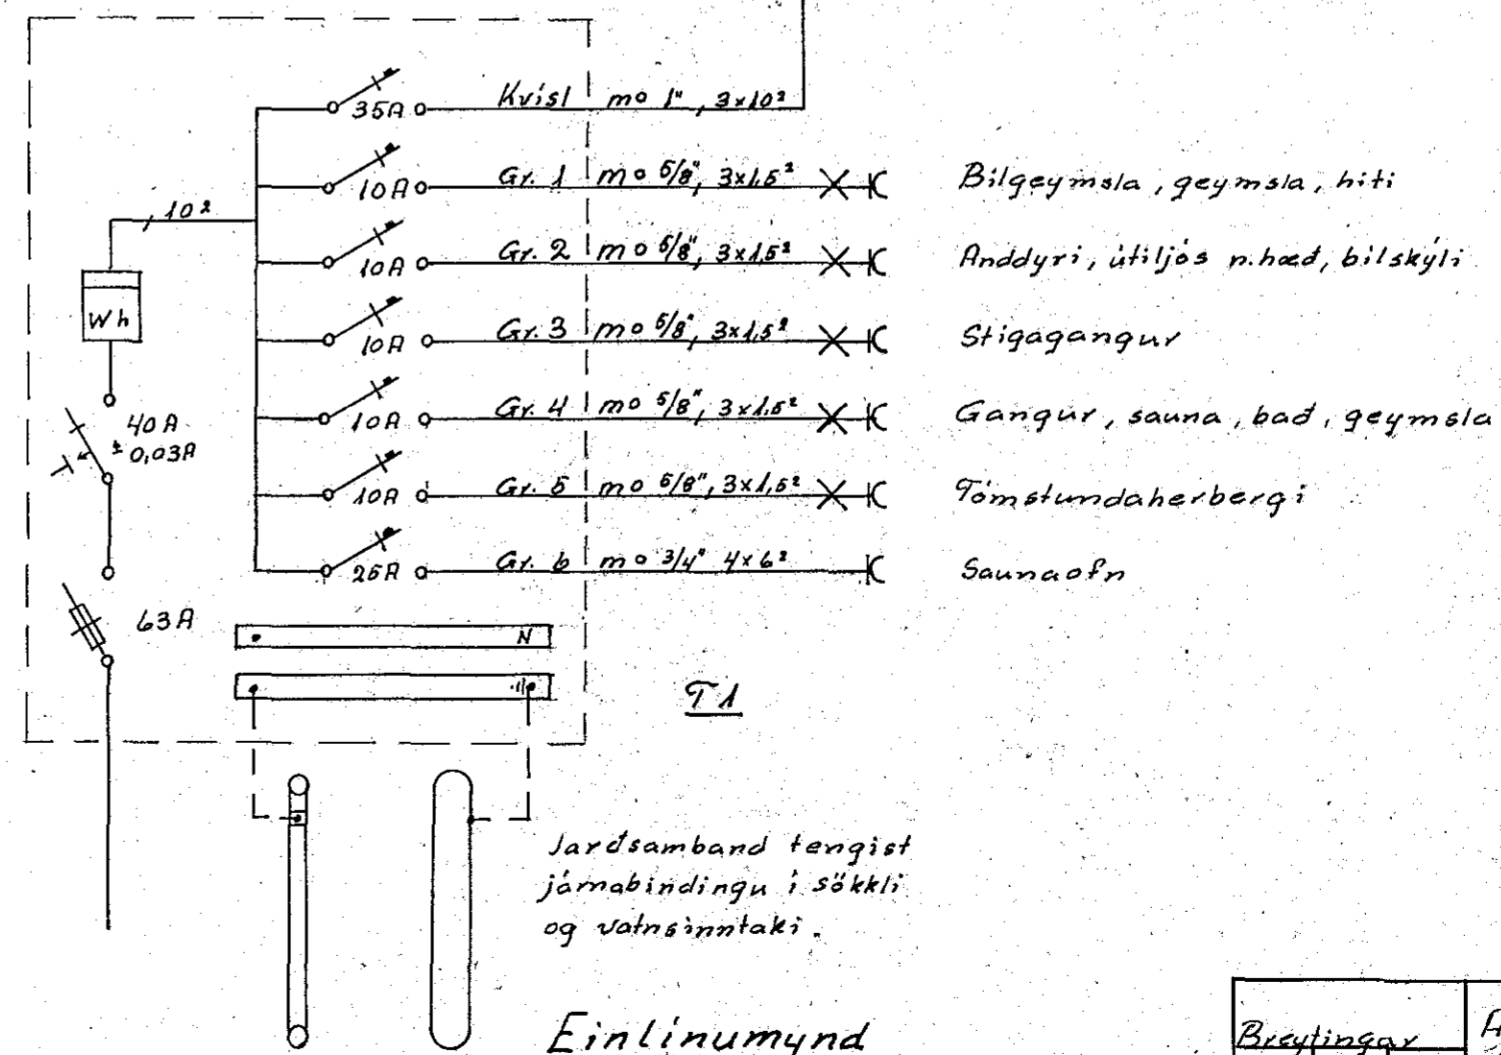 35A Kvísl mo 1", 3x10²
10A Gr. 1 mo 5/8", 3x1,5² Bilgeymsla, geymsla, hiti
10²
10A Gr. 2 mo 5/8", 3x1,5² Anddyri, útiljós n.hæð, bílskýli
Wh
10A Gr. 3 mo 5/8", 3x1,5² Stigagangur
10A Gr. 4 mo 5/8", 3x1,5² Gangur, sauna, bað, geymsla
40A
± 0,03A
10A Gr. 5 mo 5/8", 3x1,5² Tómstundaherbergi
25A Gr. 6 mo 3/4" 4x6² Saunaofn
63A
N
T1
Jarðsamband tengist
járnabindingu í sökkli
og vatnsinntaki.
Einlínumynd
Breytingar